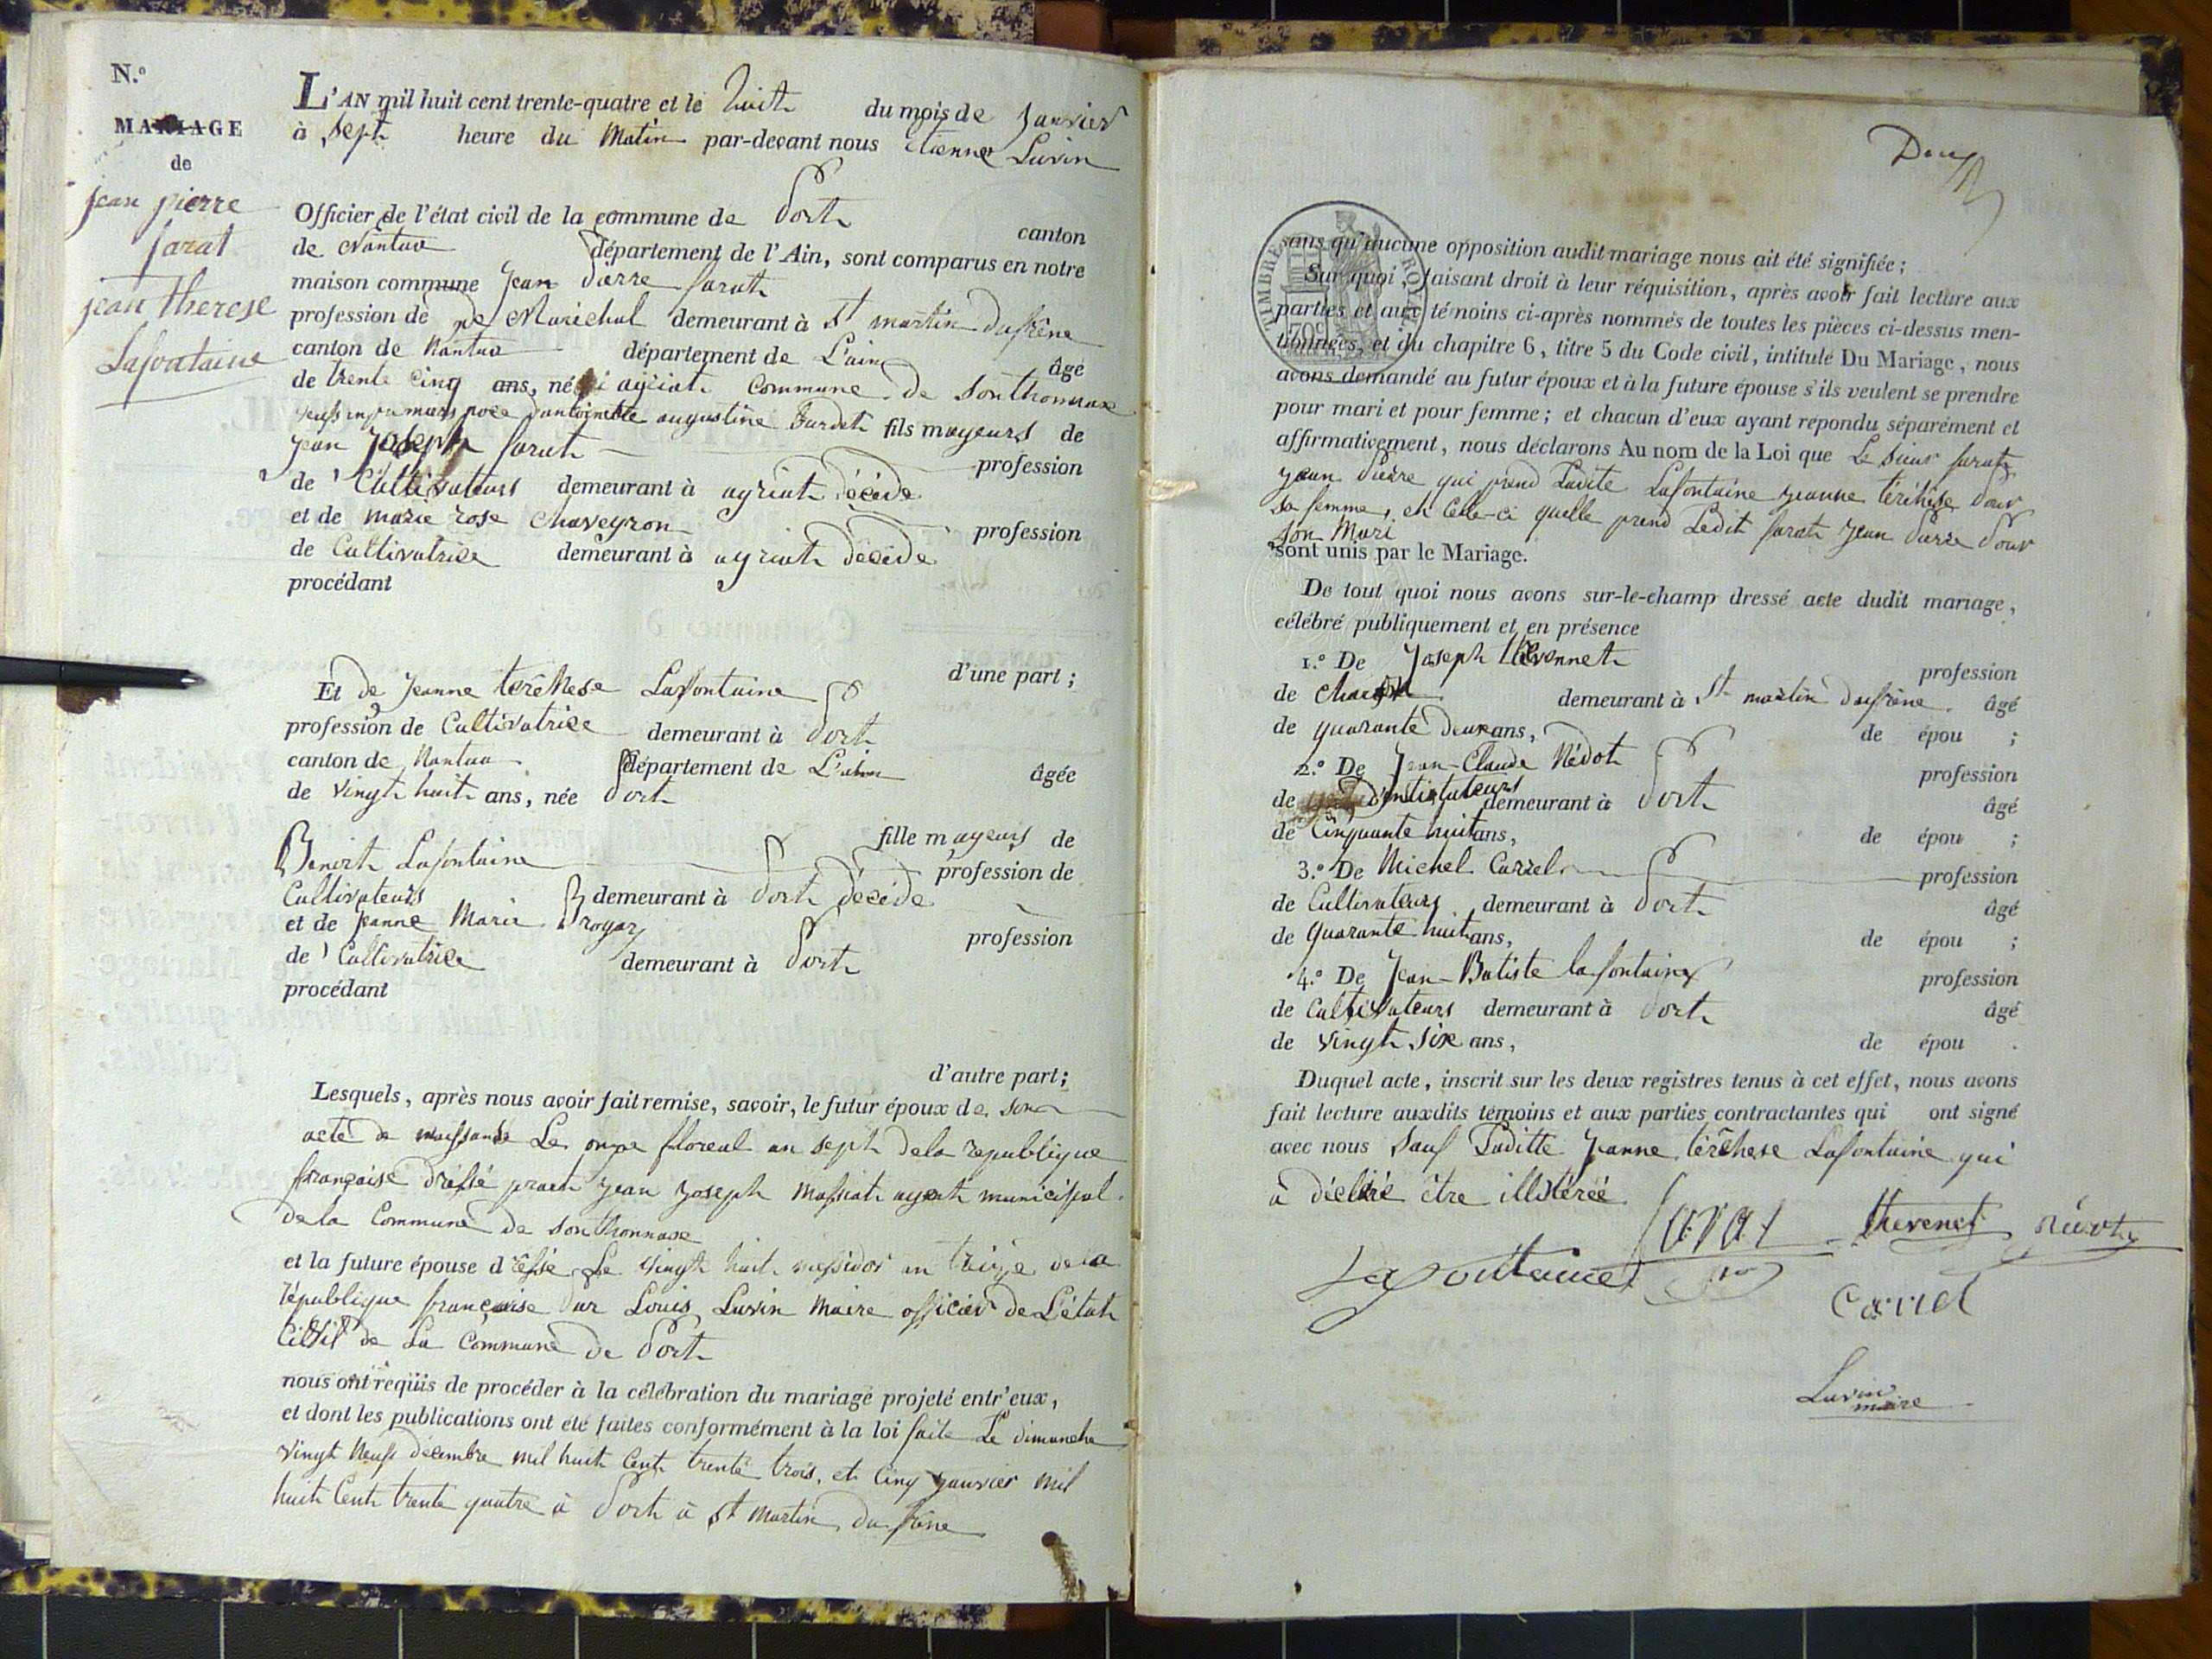 N.º
MARIAGE
de
jean pierre
farat
jean therese
Lafontaine
L'AN mil huit cent trente-quatre et le huit du mois de Janvier
à sept heure du Matin par-devant nous étienne Luvin
Officier de l'état civil de la commune de Port canton
de Nantua département de l'Ain, sont comparus en notre
maison commune Jean Pierre farat
profession de Marichal demeurant à St martin dufrêne
canton de Nantua département de L'ain âgé
de trente cinq ans, né à agriat Commune de Sonthonnax
augustine fils mayeurs de
jean joseph farat profession
de Cultivateurs demeurant à agriat décédé
et de marie rose Chaveyron profession
de Cultivatrice demeurant à agriat décédé
procédant
d'une part ;
Et de Jeanne terêhese Lafontaine
profession de Cultivatrice demeurant à Port
canton de Nantua département de L'ain âgée
de vingt huit ans, née Port
fille mayeurs de
Benoit Lafontaine profession de
Cultivateurs demeurant à Port décédé
et de Jeanne Marie profession
de Cultivatrice demeurant à Port
procédant
d'autre part ;
Lesquels, après nous avoir fait remise, savoir, le futur époux de son
acte de naissance Le onze floreal an sept de la republique
française dressé Jean Joseph Massiat agent municipal
de la Commune de Sonthonnax
et la future épouse dressé Le vingt huit messidor an treize de la
république française Par Louis Luvin Maire officier de L'état
Civil de La Commune de Port
nous ont requis de procéder à la célébration du mariage projeté entr'eux,
et dont les publications ont été faites conformément à la loi faite Le dimanche
vingt neuf décembre mil huit Cent trente trois, et Cinq janvier mil
huit Cent trente quatre à Port à St Martin du frêne
Deux
TIMBRE ROYAL
70 c
sans qu'aucune opposition audit mariage nous ait été signifiée ;
Sur quoi, faisant droit à leur réquisition, après avoir fait lecture aux
parties et aux témoins ci-après nommés de toutes les pièces ci-dessus men-
tionnées, et du chapitre 6, titre 5 du Code civil, intitulé Du Mariage, nous
avons demandé au futur époux et à la future épouse s'ils veulent se prendre
pour mari et pour femme ; et chacun d'eux ayant répondu séparément et
affirmativement, nous déclarons Au nom de la Loi que Le sieur farat
jean Pierre qui prend Ladite Lafontaine jeanne térêhése Pour
sa femme, et Celle-ci quelle prend Ledit farat Jean Pierre Pour
son Mari
sont unis par le Mariage.
De tout quoi nous avons sur-le-champ dressé acte dudit mariage,
célébré publiquement et en présence
1.º De Joseph thevennet profession
de demeurant à St martin dufrêne âgé
de quarante deux ans, de épou ;
2.º De Jean-Claude Nédot profession
de demeurant à Port âgé
de Cinquante huit ans, de épou ;
3.º De Michel Carrel profession
de Cultivateurs demeurant à Port âgé
de Quarante huit ans, de épou ;
4.º De Jean-Batiste lafontaine profession
de Cultivateurs demeurant à Port âgé
de vingt six ans, de épou .
Duquel acte, inscrit sur les deux registres tenus à cet effet, nous avons
fait lecture auxdits témoins et aux parties contractantes qui ont signé
avec nous Sauf Laditte Jeanne térêhese Lafontaine qui
à déclaré être illitérée
farat thevenet
Lafontaine
Carrel
Luvin
maire